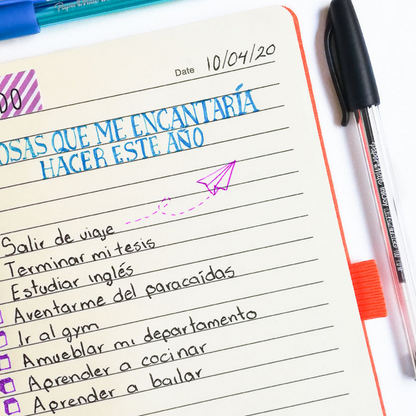 Date 10/04/20
DO
OSAS QUE ME ENCANTARÍA
HACER ESTE AÑO
Salir de viaje
Terminar mi tesis
Estudiar inglés
Aventarme del paracaídas
Ir al gym
Amueblar mi departamento
Aprender a cocinar
Aprender a bailar